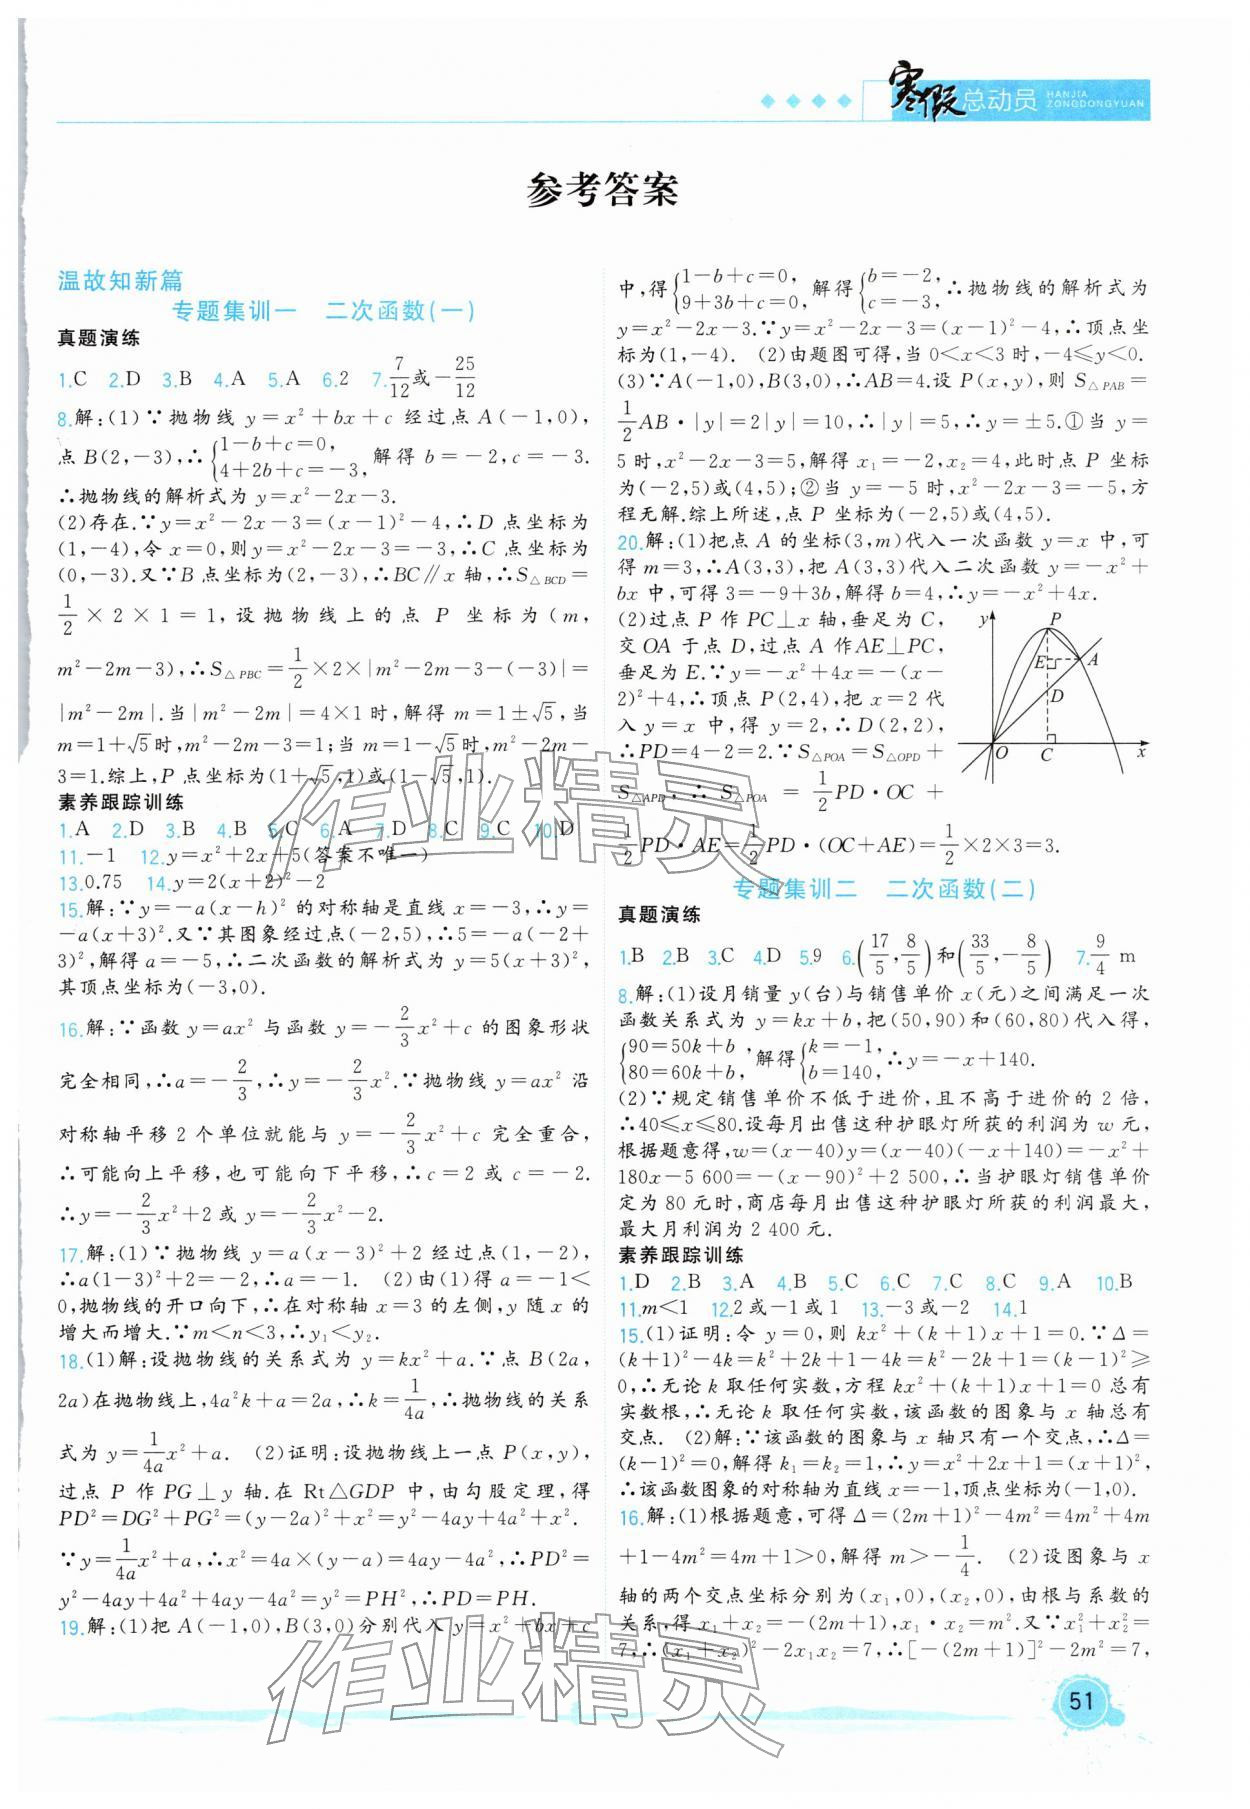 寒假总动员 HANJIA ZONGDONGYUAN
参考答案
温故知新篇
专题集训一 二次函数(一)
真题演练
1.C 2.D 3.B 4.A 5.A 6.2 7.7/12或-25/12
8.解:(1)∵抛物线 y=x²+bx+c 经过点 A(-1,0),
点B(2,-3),∴{1-b+c=0, 4+2b+c=-3, 解得 b=-2,c=-3.
∴抛物线的解析式为 y=x²-2x-3.
(2)存在.∵y=x²-2x-3=(x-1)²-4,∴D 点坐标为
(1,-4),令 x=0,则y=x²-2x-3=-3,∴C 点坐标为
(0,-3).又∵B 点坐标为(2,-3),∴BC∥x 轴,∴S△BCD=
1/2×2×1=1,设抛物线上的点 P 坐标为(m,
m²-2m-3),∴S△PBC=1/2×2×|m²-2m-3-(-3)|=
|m²-2m|.当|m²-2m|=4×1时,解得 m=1±√5,当
m=1+√5时,m²-2m-3=1;当 m=1-√5时,m²-2m-
3=1.综上,P 点坐标为(1+√5,1)或(1-√5,1).
素养跟踪训练
1.A 2.D 3.B 4.B 5.C 6.A 7.D 8.C 9.C 10.D
11.-1 12.y=x²+2x+5(答案不唯一)
13.0.75 14.y=2(x+2)²-2
15.解:∵y=-a(x-h)² 的对称轴是直线 x=-3,∴y=
-a(x+3)².又∵其图象经过点(-2,5),∴5=-a(-2+
3)²,解得 a=-5,∴二次函数的解析式为 y=5(x+3)²,
其顶点坐标为(-3,0).
16.解:∵函数 y=ax² 与函数 y=-2/3x²+c 的图象形状
完全相同,∴a=-2/3,∴y=-2/3x².∵抛物线 y=ax² 沿
对称轴平移 2 个单位就能与 y=-2/3x²+c 完全重合,
∴可能向上平移,也可能向下平移,∴c=2 或 c=-2.
∴y=-2/3x²+2 或 y=-2/3x²-2.
17.解:(1)∵抛物线 y=a(x-3)²+2 经过点(1,-2),
∴a(1-3)²+2=-2,∴a=-1. (2)由(1)得 a=-1<
0,抛物线的开口向下,∴在对称轴 x=3 的左侧,y 随 x 的
增大而增大.∵m<n<3,∴y₁<y₂.
18.(1)解:设抛物线的关系式为 y=kx²+a.∵点 B(2a,
2a)在抛物线上,4a²k+a=2a,∴k=1/4a,∴抛物线的关系
式为 y=1/4a x²+a. (2)证明:设抛物线上一点 P(x,y),
过点 P 作 PG⊥y 轴.在 Rt△GDP 中,由勾股定理,得
PD²=DG²+PG²=(y-2a)²+x²=y²-4ay+4a²+x².
∵y=1/4a x²+a,∴x²=4a×(y-a)=4ay-4a²,∴PD²=
y²-4ay+4a²+4ay-4a²=y²=PH²,∴PD=PH.
19.解:(1)把 A(-1,0),B(3,0)分别代入 y=x²+bx+c
中,得{1-b+c=0, 9+3b+c=0, 解得{b=-2, c=-3, ∴抛物线的解析式为
y=x²-2x-3.∵y=x²-2x-3=(x-1)²-4,∴顶点坐
标为(1,-4). (2)由题图可得,当 0<x<3 时,-4≤y<0.
(3)∵A(-1,0),B(3,0),∴AB=4.设 P(x,y),则 S△PAB=
1/2AB·|y|=2|y|=10,∴|y|=5,∴y=±5.①当 y=
5时,x²-2x-3=5,解得 x₁=-2,x₂=4,此时点 P 坐标
为(-2,5)或(4,5);②当 y=-5 时,x²-2x-3=-5,方
程无解.综上所述,点 P 坐标为(-2,5)或(4,5).
20.解:(1)把点 A 的坐标(3,m)代入一次函数 y=x 中,可
得 m=3,∴A(3,3),把 A(3,3)代入二次函数 y=-x²+
bx 中,可得 3=-9+3b,解得 b=4,∴y=-x²+4x.
(2)过点 P 作 PC⊥x 轴,垂足为 C,
交 OA 于点 D,过点 A 作AE⊥PC,
垂足为 E.∵y=-x²+4x=-(x-
2)²+4,∴顶点 P(2,4),把 x=2 代
入 y=x 中,得 y=2,∴D(2,2),
∴PD=4-2=2.∵S△POA=S△OPD+
S△APD,∴S△POA=1/2PD·OC+
1/2PD·AE=1/2PD·(OC+AE)=1/2×2×3=3.
y P E A D O C x
专题集训二 二次函数(二)
真题演练
1.B 2.B 3.C 4.D 5.9 6.(17/5,8/5)和(33/5,-8/5) 7.9/4 m
8.解:(1)设月销量 y(台)与销售单价 x(元)之间满足一次
函数关系式为 y=kx+b,把(50,90)和(60,80)代入得,
{90=50k+b, 80=60k+b, 解得{k=-1, b=140, ∴y=-x+140.
(2)∵规定销售单价不低于进价,且不高于进价的 2 倍,
∴40≤x≤80.设每月出售这种护眼灯所获的利润为 w 元,
根据题意得,w=(x-40)y=(x-40)(-x+140)=-x²+
180x-5 600=-(x-90)²+2 500,∴当护眼灯销售单价
定为 80 元时,商店每月出售这种护眼灯所获的利润最大,
最大月利润为 2 400 元.
素养跟踪训练
1.D 2.B 3.A 4.B 5.C 6.C 7.C 8.C 9.A 10.B
11.m<1 12.2 或-1 或 1 13.-3 或-2 14.1
15.(1)证明:令 y=0,则 kx²+(k+1)x+1=0.∵Δ=
(k+1)²-4k=k²+2k+1-4k=k²-2k+1=(k-1)²≥
0,∴无论 k 取任何实数,方程 kx²+(k+1)x+1=0 总有
实数根,∴无论 k 取任何实数,该函数的图象与 x 轴总有
交点. (2)解:∵该函数的图象与 x 轴只有一个交点,∴Δ=
(k-1)²=0,解得 k₁=k₂=1,∴y=x²+2x+1=(x+1)²,
∴该函数图象的对称轴为直线 x=-1,顶点坐标为(-1,0).
16.解:(1)根据题意,可得 Δ=(2m+1)²-4m²=4m²+4m
+1-4m²=4m+1>0,解得 m>-1/4. (2)设图象与 x
轴的两个交点坐标分别为(x₁,0),(x₂,0),由根与系数的
关系,得 x₁+x₂=-(2m+1),x₁·x₂=m².又∵x₁²+x₂²=
7,∴(x₁+x₂)²-2x₁x₂=7,∴[-(2m+1)]²-2m²=7,
作业精灵
作业精灵
51